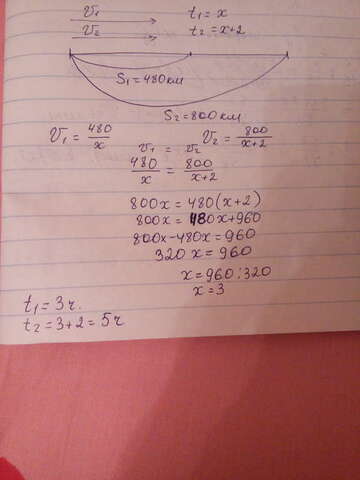 V₁ t₁ = x
V₂ t₂ = x+2
S₁ = 480 км
S₂ = 800 км
V₁ = 480/x V₂ = 800/x+2
V₁ = V₂
480/x = 800/x+2
800x = 480(x+2)
800x = 480x+960
800x-480x = 960
320x = 960
x = 960:320
x = 3
t₁ = 3 ч.
t₂ = 3+2 = 5 ч